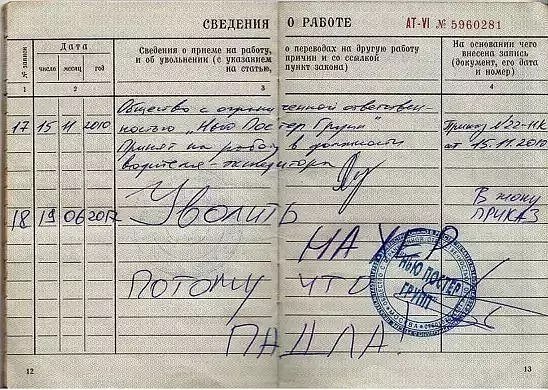 СВЕДЕНИЯ О РАБОТЕ AT-VI № 5960281
№ записи
Дата
число месяц год
Сведения о приеме на работу, о переводах на другую работу
и об увольнении (с указанием причин и со ссылкой
на статью, пункт закона)
На основании чего
внесена запись
(документ, его дата
и номер)
1 2 3 4
Общество с ограниченной ответствен-
ностью „Нью Постер Групп"
17 15 11 2010 Принят на работу в должности
водителя-экспедитора
Приказ №22-НК
от 15.11.2010
18 19 06 2017 Уволить
НА ХЕР
ПОТОМУ ЧТО
ПАДЛА!
В жопу
ПРИКАЗ
НЬЮ ПОСТЕР
ГРУПП
МОСКВА
12 13